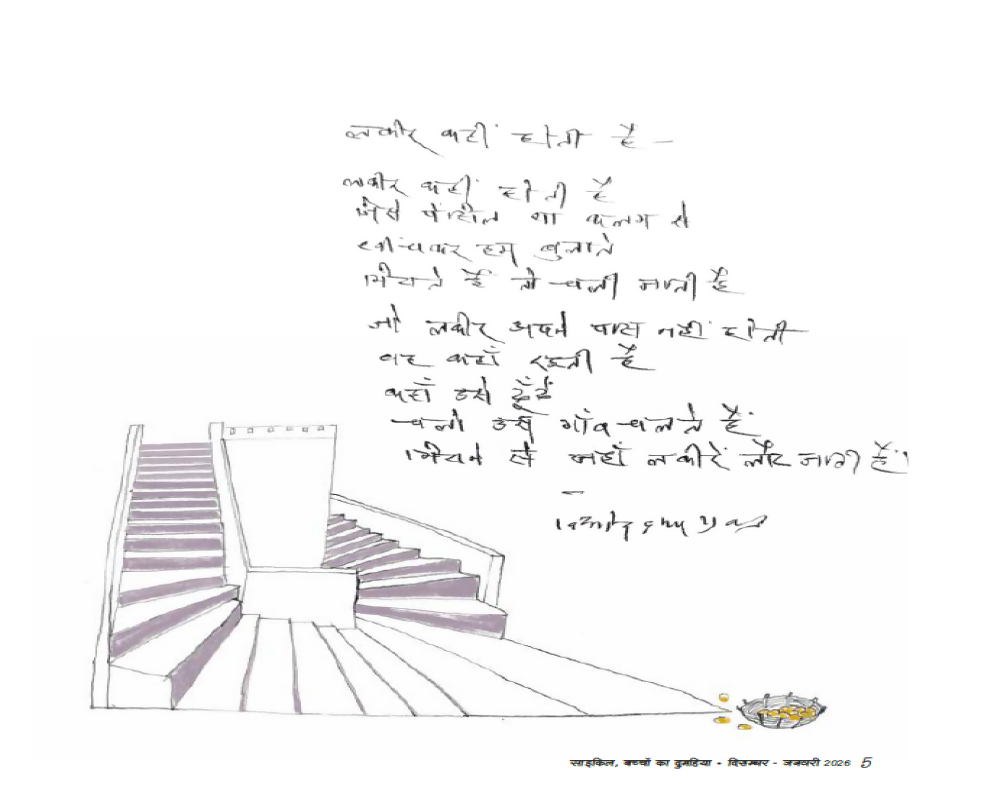 लकीर कहीं होती है –
लकीर कहीं होती है
जैसे पेंसिल या कलम से
खींचकर हम बुलाते
मिटाते हैं तो चली जाती है
जो लकीर अपने पास नहीं होती
वह कहाँ रहती है
कहाँ उसे ढूँढें
चलो उसके गाँव चलते हैं
मिटाने से जहाँ लकीरें लौट जाती हैं।
–
साइकिल, बच्चों का दुमहिया • दिसम्बर - जनवरी 2026 5